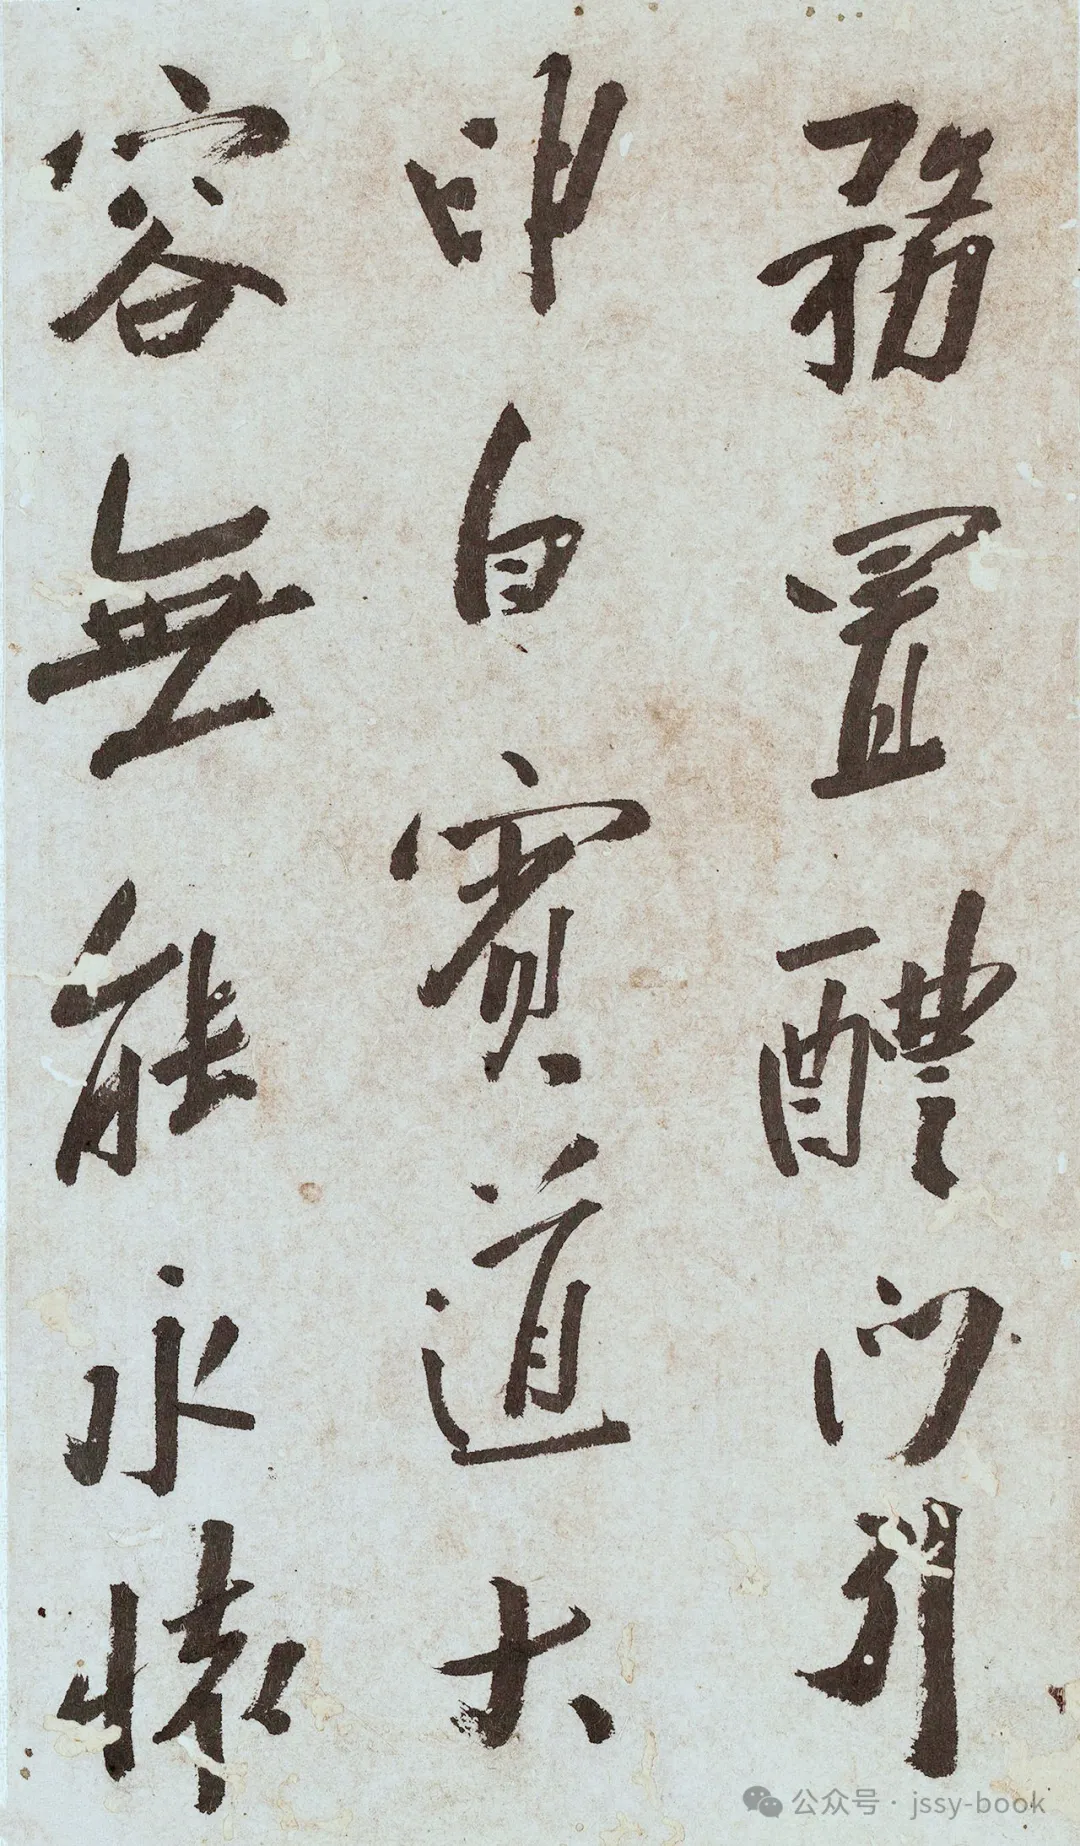 務置醴門引
申白賓道大
容無能永懷
公众号·jssy-book